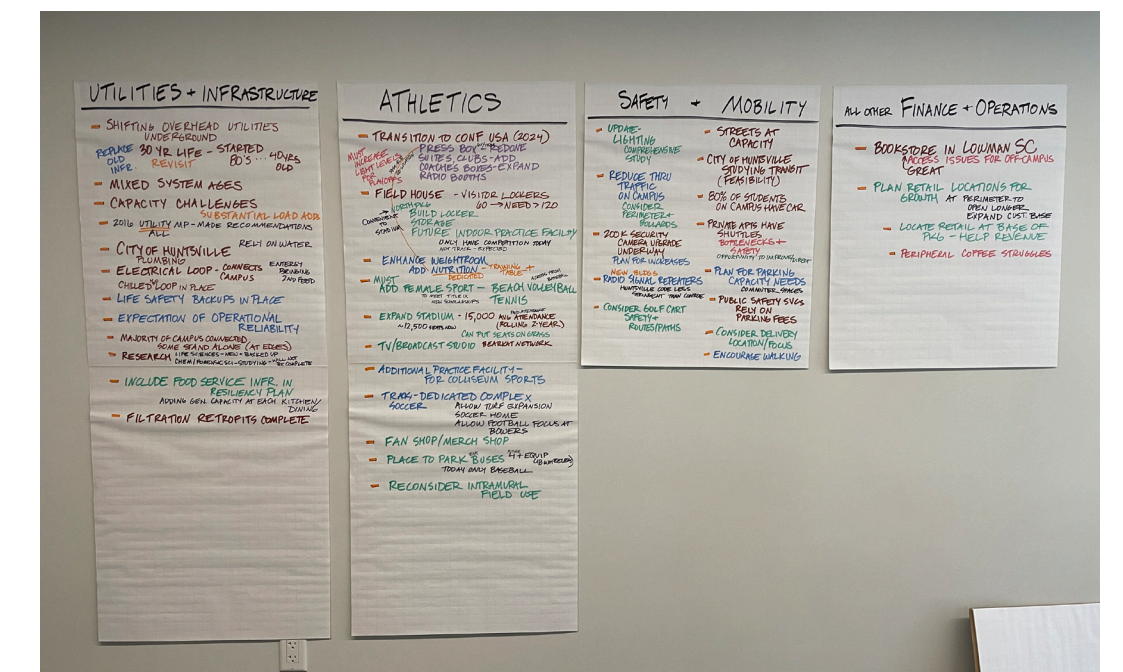 UTILITIES + INFRASTRUCTURE
- SHIFTING OVERHEAD UTILITIES
UNDERGROUND
REPLACE
OLD
INFR.
30 YR LIFE - STARTED
80'S ... 40 YRS
OLD
REVISIT
- MIXED SYSTEM AGES
- CAPACITY CHALLENGES
SUBSTANTIAL LOAD ADDS
- 2016 UTILITY MP - MADE RECOMMENDATIONS
ALL
CITY OF HUNTSVILLE
RELY ON WATER
PLUMBING
- ELECTRICAL LOOP - CONNECTS
CAMPUS
ENTERGY
BRINGING
2ND FEED
CHILLED LOOP IN PLACE
- LIFE SAFETY BACKUPS IN PLACE
- EXPECTATION OF OPERATIONAL
RELIABILITY
- MAJORITY OF CAMPUS CONNECTED,
SOME STAND ALONE (AT EDGES)
- RESEARCH
LIFE SCIENCES - NEW + BACKED UP
CHEM/FORENSIC SCI - STUDYING - WILL NOT
BE COMPLETE
- INCLUDE FOOD SERVICE INFR. IN
RESILIENCY PLAN
ADDING GEN. CAPACITY AT EACH KITCHEN/
DINING
- FILTRATION RETROFITS COMPLETE
ATHLETICS
- TRANSITION TO CONF USA (2024)
MUST
INCREASE
LIGHT LEVELS
FOR
PLAYOFFS
PRESS BOX - REDONE
SUITES CLUBS - ADD
COACHES BOXES - EXPAND
RADIO BOOTHS
- FIELD HOUSE - VISITOR LOCKERS
60 → NEED > 120
NORTH PKG
CONVENIENT
TO
STADIUM
BUILD LOCKER
STORAGE
FUTURE INDOOR PRACTICE FACILITY
ONLY HAVE COMPETITION TODAY
NOT TRACK - EXPECTED
- ENHANCE WEIGHTROOM
ADD NUTRITION - TRAINING +
TABLE
DEDICATED
- MUST
ADD FEMALE SPORT - BEACH VOLLEYBALL
TO MEET TITLE IX
TENNIS
- EXPAND STADIUM - 15,000 AVG ATTENDANCE
(ROLLING 2-YEAR)
~12,500 SEATS NOW
CAN PUT SEATS ON GRASS
- TV/BROADCAST STUDIO BEARKAT NETWORK
- ADDITIONAL PRACTICE FACILITY -
FOR COLLISEUM SPORTS
- TRACK - DEDICATED COMPLEX
SOCCER
ALLOW TURF EXPANSION
SOCCER HOME
ALLOW FOOTBALL FOCUS AT
BOWERS
- FAN SHOP/MERCH SHOP
- PLACE TO PARK BUSES 4+ EQUIP
(18 WHEELER)
TODAY ONLY BASEBALL
- RECONSIDER INTRAMURAL
FIELD USE
SAFETY + MOBILITY
- UPDATE -
LIGHTING
COMPREHENSIVE
STUDY
- REDUCE THRU
TRAFFIC
ON CAMPUS
CONSIDER
PERIMETER +
BOLLARDS
- 200K SECURITY
CAMERA UPGRADE
UNDERWAY
PLAN FOR INCREASES
NEW BLDGS
- RADIO SIGNAL REPEATERS
HUNTSVILLE CODE LESS
STRINGENT THAN CONROE
- CONSIDER GOLF CART
SAFETY +
ROUTES/PATHS
- STREETS AT
CAPACITY
- CITY OF HUNTSVILLE
STUDYING TRANSIT
(FEASIBILITY)
- 80% OF STUDENTS
ON CAMPUS HAVE CAR
- PRIVATE APTS HAVE
SHUTTLES
BOTTLENECKS +
SAFETY
OPPORTUNITY TO IMPROVE
- PLAN FOR PARKING
CAPACITY NEEDS
COMMUTER SPACES
- PUBLIC SAFETY SVCS
RELY ON
PARKING FEES
- CONSIDER DELIVERY
LOCATION/FOCUS
- ENCOURAGE WALKING
ALL OTHER FINANCE + OPERATIONS
- BOOKSTORE IN LOWMAN SC
ACCESS ISSUES FOR OFF-CAMPUS
GREAT
- PLAN RETAIL LOCATIONS FOR
GROWTH AT PERIMETER TO
OPEN LONGER
EXPAND CUST. BASE
- LOCATE RETAIL AT BASE OF
PKG - HELP REVENUE
- PERIPHERAL COFFEE STRUGGLES